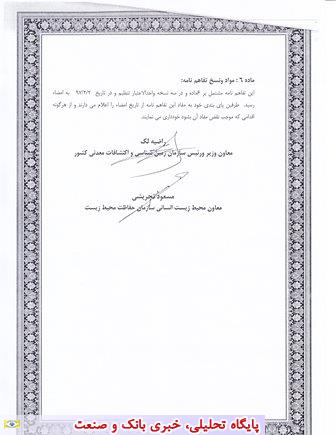 ماده ٦ : مواد ونسخ تفاهم نامه:
این تفاهم نامه مشتمل بر ٦ماده و در سه نسخه واحدالاعتبار تنظیم و در تاریخ ٩٧/٢/٢ به امضاء
رسید. طرفین پای بندی خود به مفاد این تفاهم نامه از تاریخ امضاء را اعلام می دارند و از هرگونه
اقدامی که موجب نقض مفاد آن بشود خودداری می نمایند.
راضیه لک
معاون وزیر ورئیس سازمان زمین شناسی و اکتشافات معدنی کشور
مسعود تجریشی
معاون محیط زیست انسانی سازمان حفاظت محیط زیست
پایگاه تحلیلی، خبری بانک و صنعت